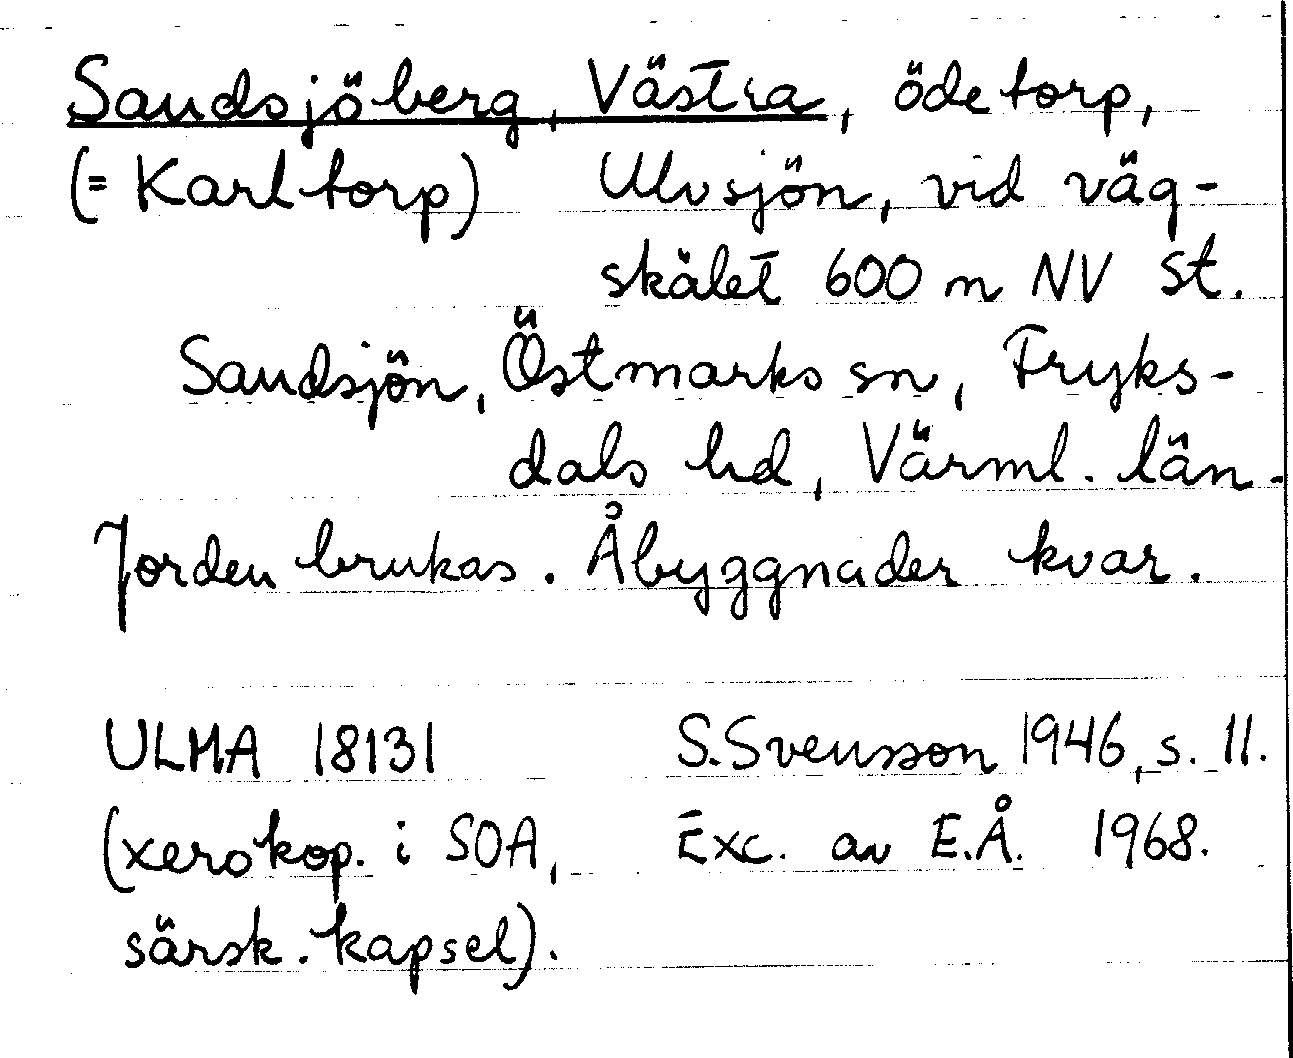 Sandsjöberg, Västra, ödetorp,
(= Karltorp) Ulvsjön, vid väg-
skälet 600 m NV st.
Sandsjön, Östmarks sn, Fryks-
dals hd, Värml. län.
Jorden brukas. Åbyggnader kvar.
ULMA 18131 S. Svensson 1946, s. 11.
(xerokop. i SOA, Exc. av E.Å. 1968.
särsk. kapsel).